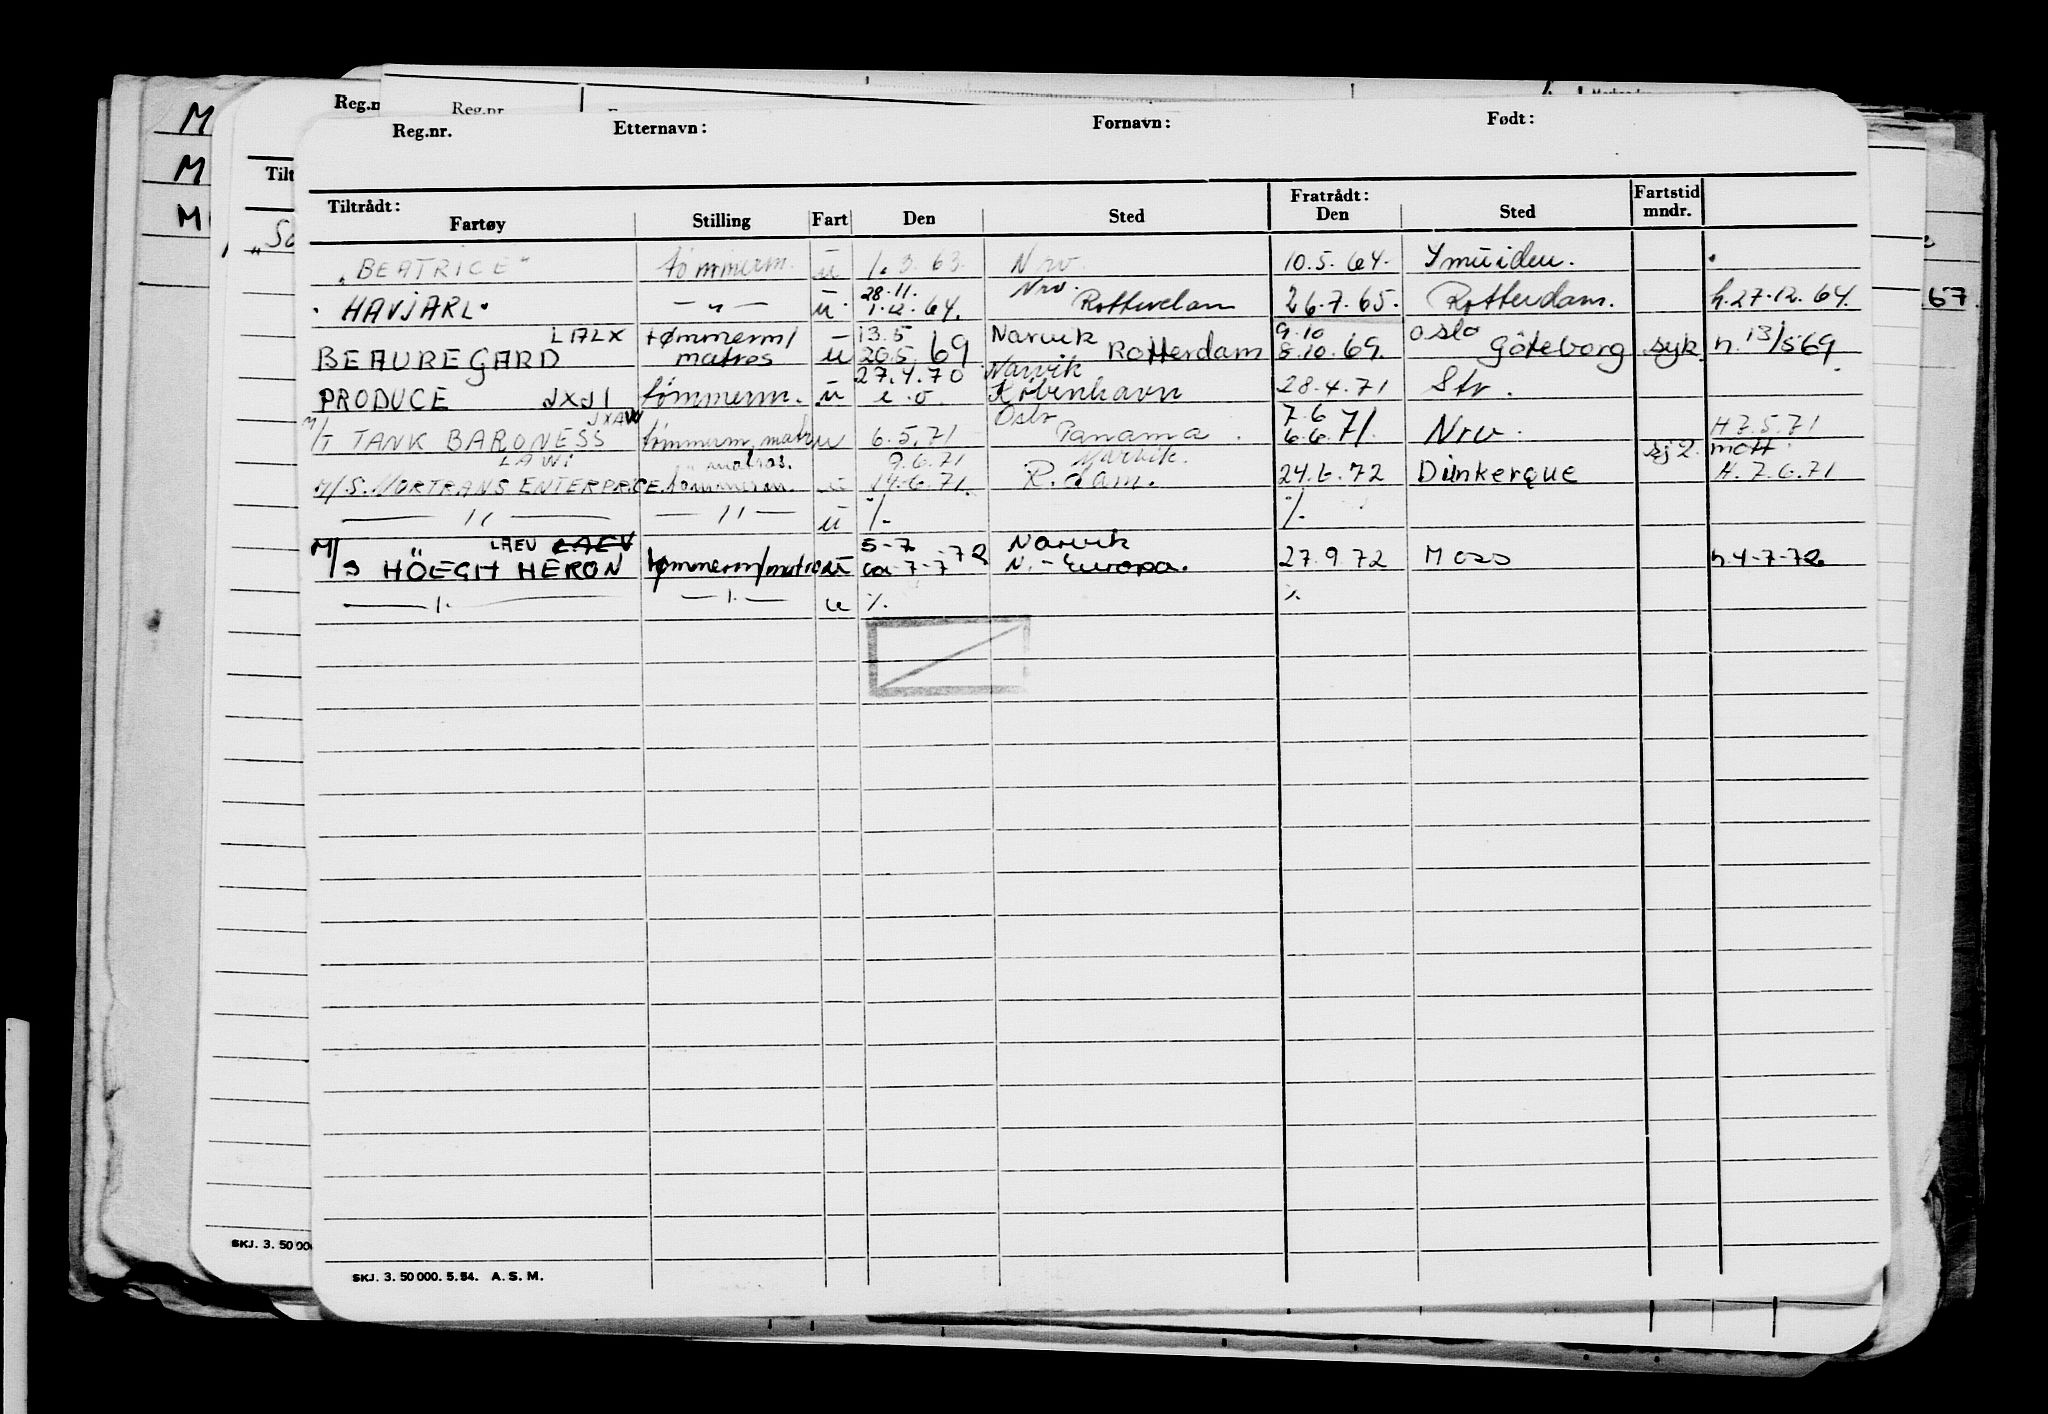 Reg.nr. Etternavn: Fornavn: Født:
Tiltrådt: Fratrådt: Fartstid
Fartøy Stilling Fart Den Sted Den Sted mndr.
„BEATRICE" tømmerm. u 1.3.63. Nrv. 10.5.64. Ymuiden.
28.11. Nrv.
HAVJARL — „ — u. 1.12.64. Rotterdam 26.7.65. Rotterdam. h.27.12.64.
LALX tømmerm/ 13.5 Narvik 9.10 Oslo
BEAUREGARD matros u 20.5.69 Rotterdam 8.10.69 Göteborg syk h.13/5 69
27.4.70 Narvik
PRODUCE JXJI tømmerm. u e.o. København 28.4.71 Str.
JXAW Oslo 7.6
M/T TANK BARONESS tømmerm, matr u 6.5.71 Panama. 6.6.71. Nrv. H 7.5.71
LAWI matros. 9.6.71 Narvik. sj 2. mott
M/S. NORTRANS ENTERPRICE. tømmerm. u 14.6.71. R.dam. 24.6.72 Dunkerque H.7.6.71
— " — — " — u /- /-
LAEV LAEV 5-7 Narvik
M/S HÖEGH HERON tømmerm/matros u ca 7-7-72 N.-Europa. 27.9.72 Moss h.4-7-72
u
SKJ. 3. 50 000. 5.54. A. S. M.
Reg.n
Reg.nr
Tilt
„So
M
M
M
67.
SKJ. 3. 50 00